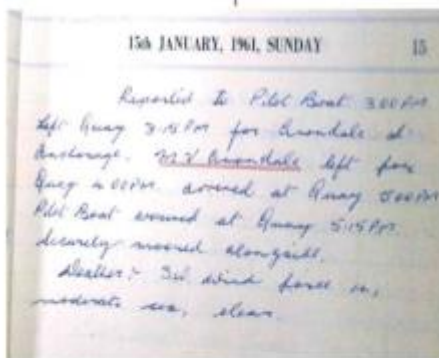 15th JANUARY, 1961, SUNDAY 15
Reported to Pilot Boat 3.00 PM
Left Quay 3.15 PM for Avondale at
Anchorage. M V Avondale left for
Quay 4.00 PM. arrived at Quay 5.00 PM
Pilot Boat arrived at Quay 5.15 PM.
Securely moored alongside.
Weather:- wind force
moderate sea, clear.